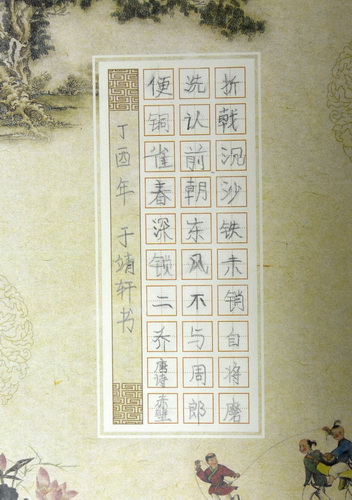 折戟沉沙铁未销自将磨
洗认前朝东风不与周郎
便铜雀春深锁二乔唐诗赤壁
丁酉年 于靖轩书